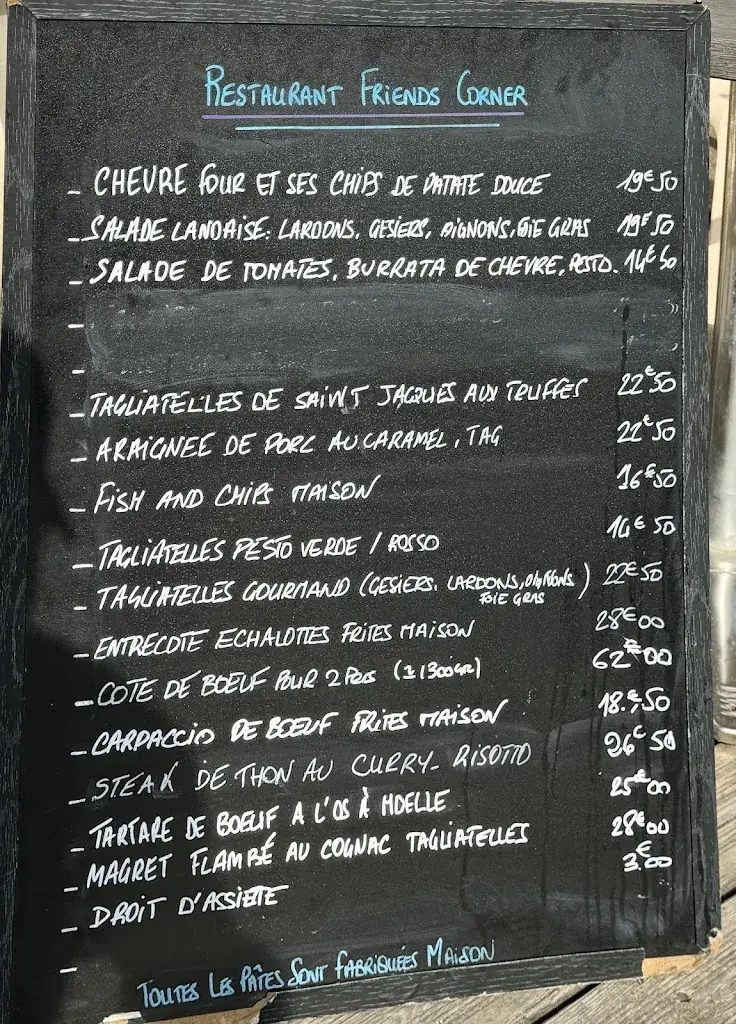 RESTAURANT FRIENDS CORNER
- CHEVRE FOUR ET SES CHIPS DE PATATE DOUCE 19€50
- SALADE LANDAISE: LARDONS, GESIERS, PIGNONS, FOIE GRAS 19€50
- SALADE DE TOMATES, BURRATA DE CHEVRE, PESTO. 14€50
-
-
- TAGLIATELLES DE SAINT JACQUES AUX TRUFFES 22€50
- ARAIGNEE DE PORC AU CARAMEL, TAG 21€50
- FISH AND CHIPS MAISON 16€50
- TAGLIATELLES PESTO VERDE / ROSSO 14€50
- TAGLIATELLES GOURMAND (GESIERS, LARDONS, PIGNONS) 22€50
FOIE GRAS
- ENTRECOTE ECHALOTTES FRITES MAISON 28€00
- COTE DE BOEUF POUR 2 PERS (± 1300GR) 62€00
- CARPACCIO DE BOEUF FRITES MAISON 18.€50
- STEAK DE THON AU CURRY - RISOTTO 26€50
- TARTARE DE BOEUF A L'OS À MOELLE 25€00
- MAGRET FLAMBÉ AU COGNAC TAGLIATELLES 28€00
- DROIT D'ASSIETE 3.€00
-
TOUTES LES PÂTES SONT FABRIQUÉES MAISON